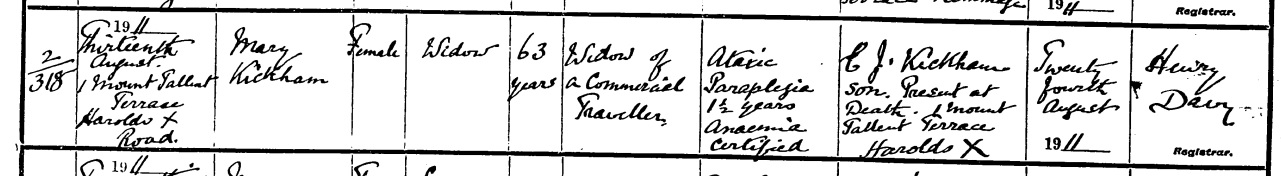 19 11
Registrar.
2/318
1911
Thirteenth
August
1 Mount Tallent
Terrace
Harolds X
Road.
Mary
Kickham
Female
Widow
63
years
Widow of
a Commercial
Traveller
Ataxic
Paraplegia
1½ years
Anaemia
Certified
C J. Kickham
son. Present at
Death. 1 Mount
Tallent Terrace
Harolds X
Twenty
fourth
August
19 11
Henry
Davy
Registrar.
19 11